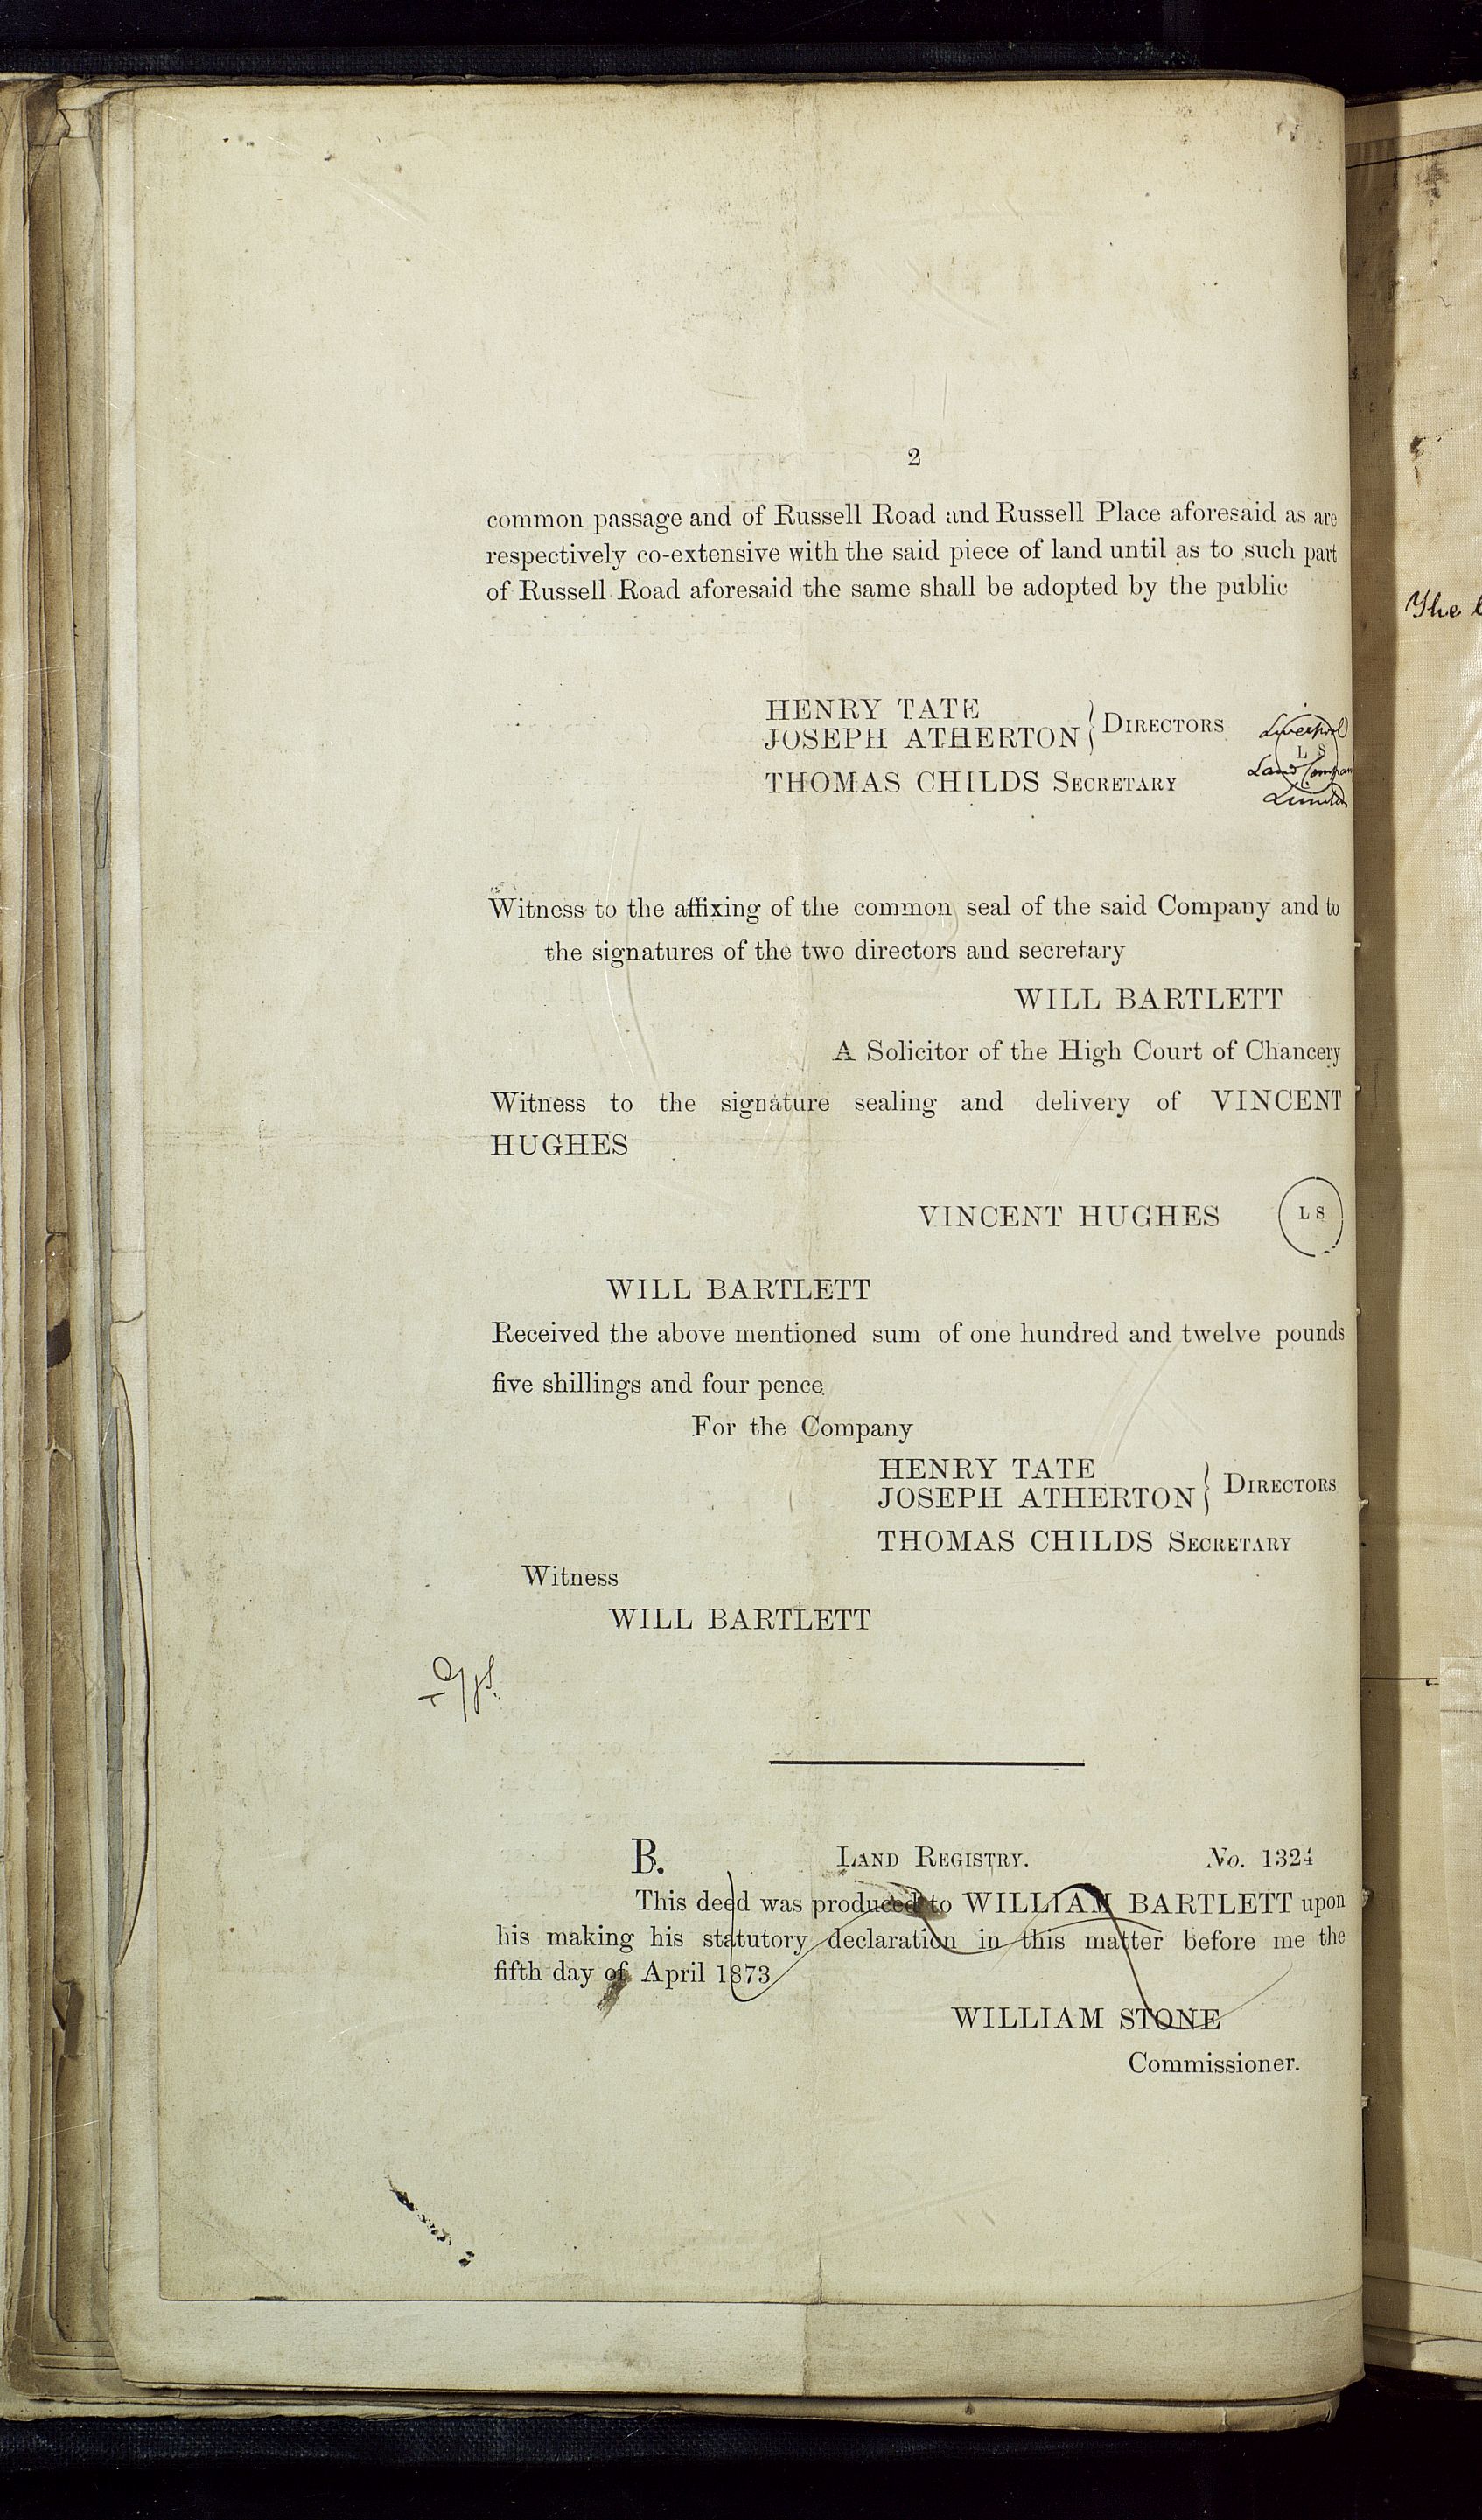 2
common passage and of Russell Road and Russell Place aforesaid as are
respectively co-extensive with the said piece of land until as to such part
of Russell Road aforesaid the same shall be adopted by the public
HENRY TATE
JOSEPH ATHERTON } DIRECTORS
THOMAS CHILDS SECRETARY
Liverpool
L S
Land Compan
Limited
Witness to the affixing of the common seal of the said Company and to
the signatures of the two directors and secretary
WILL BARTLETT
A Solicitor of the High Court of Chancery
Witness to the signature sealing and delivery of VINCENT
HUGHES
VINCENT HUGHES L S
WILL BARTLETT
Received the above mentioned sum of one hundred and twelve pounds
five shillings and four pence
For the Company
HENRY TATE
JOSEPH ATHERTON } DIRECTORS
THOMAS CHILDS SECRETARY
Witness
WILL BARTLETT
B. LAND REGISTRY. No. 1324
This deed was produced to WILLIAM BARTLETT upon
his making his statutory declaration in this matter before me the
fifth day of April 1873
WILLIAM STONE
Commissioner.
The